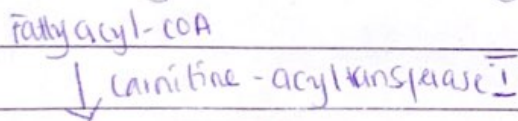 Fattyacyl-COA
↓ Carnitine - acyltransferase I